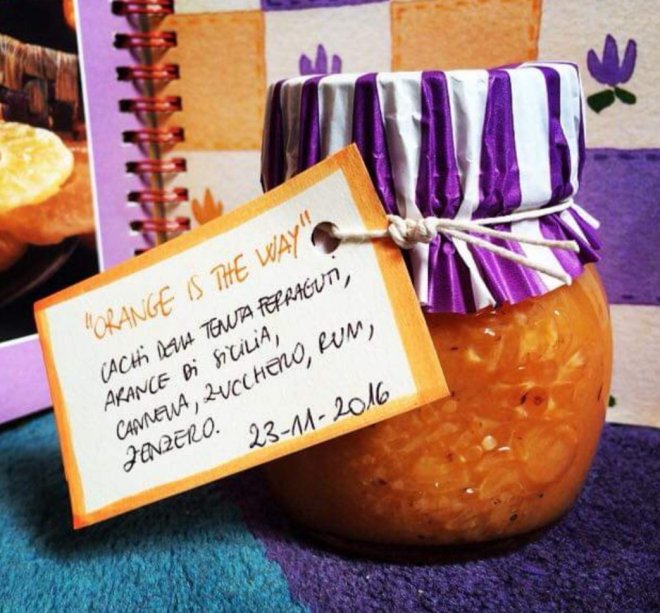 "ORANGE IS THE WAY"
CACHI DELLA TENUTA FERRAGUTI,
ARANCE DI SICILIA,
CANNELLA, ZUCCHERO, RUM,
ZENZERO. 23-11-2016